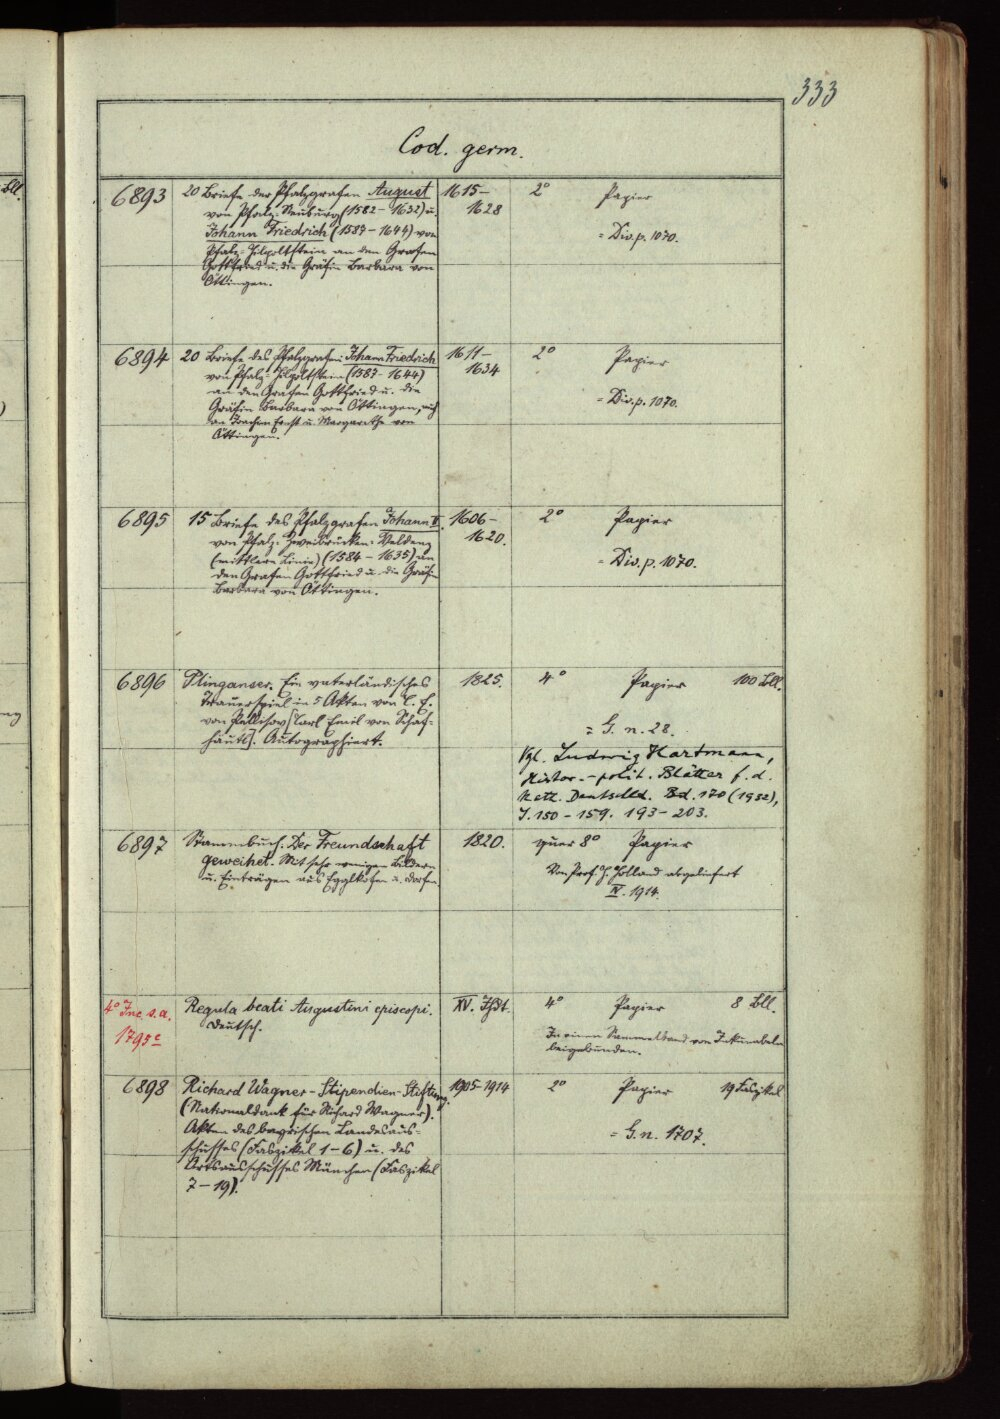 333
Cod. germ.
6893 20 Briefe der Pfalzgrafen August 1615- 2° Papier
von Pfalz-Neuburg (1582-1632) u. 1628
Johann Friedrich (1587-1644) von = Div. p. 1070.
Pfalz-Hilpoltstein an den Grafen
Gottfried u. die Gräfin Barbara von
Öttingen.
6894 20 Briefe des Pfalzgrafen Johann Friedrich 1611- 2° Papier
von Pfalz-Hilpoltstein (1587-1644) 1634
an den Grafen Gottfried u. die = Div. p. 1070.
Gräfin Barbara von Öttingen, auch
an Joachim Ernst u. Margarethe von
Öttingen.
6895 15 Briefe des Pfalzgrafen Johann II. 1606- 2° Papier
von Pfalz-Zweibrücken-Veldenz 1620.
(mittlere Linie) (1584-1635) an = Div. p. 1070.
den Grafen Gottfried u. die Gräfin
Barbara von Öttingen.
6896 Plinganser. Ein vaterländisches 1825. 4° Papier 100 Bll.
Trauerspiel in 5 Akten von C. E.
von Pellisov [Carl Emil von Schaf- = G. n. 28.
häutl]. Autographiert.
Vgl. Ludwig Hartmann,
Histor.-polit. Blätter f. d.
kath. Deutschld. Bd. 170 (1922),
S. 150-159. 193-203.
6897 Stammbuch. Der Freundschaft 1820. quer 8° Papier
geweihet. Mit sehr wenigen Bildern
u. Einträgen aus Egglkofen u. Dorfen. Von Prof. H. Holland abgeliefert
IV. 1914.
4° Inc. s. a. Regula beati Augustini episcopi. XV. Jhdt. 4° Papier 8 Bll.
1795c Deutsch.
In einen Sammelband von Inkunabeln
beigebunden.
6898 Richard Wagner-Stipendien-Stiftung 1905-1914 2° Papier 19 Faszikel
(Nationaldank für Richard Wagner).
Akten des bayrischen Landesaus- = G. n. 1707.
schusses (Faszikel 1-6) u. des
Ortsausschusses München (Faszikel
7-19).